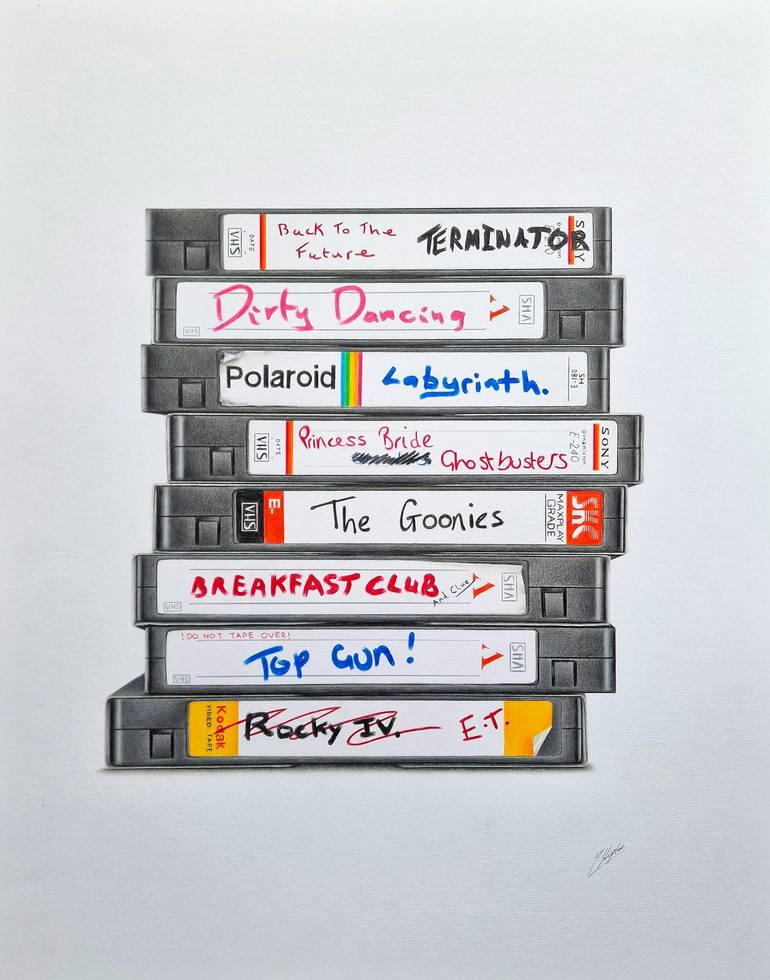 VHS DATE Back To The Future TERMINATOR SONY
VHS Dirty Dancing A SHA
Polaroid Labyrinth.
VHS DATE Princess Bride Ghostbusters E-240 SONY
VHS E- The Goonies MAXPLAY GRADE SKC
VHS BREAKFAST CLUB And Clue A SHA
!DO NOT TAPE OVER!
VHS Top Gun! A SHA
Kodak VIDEO TAPE Rocky IV. E.T.